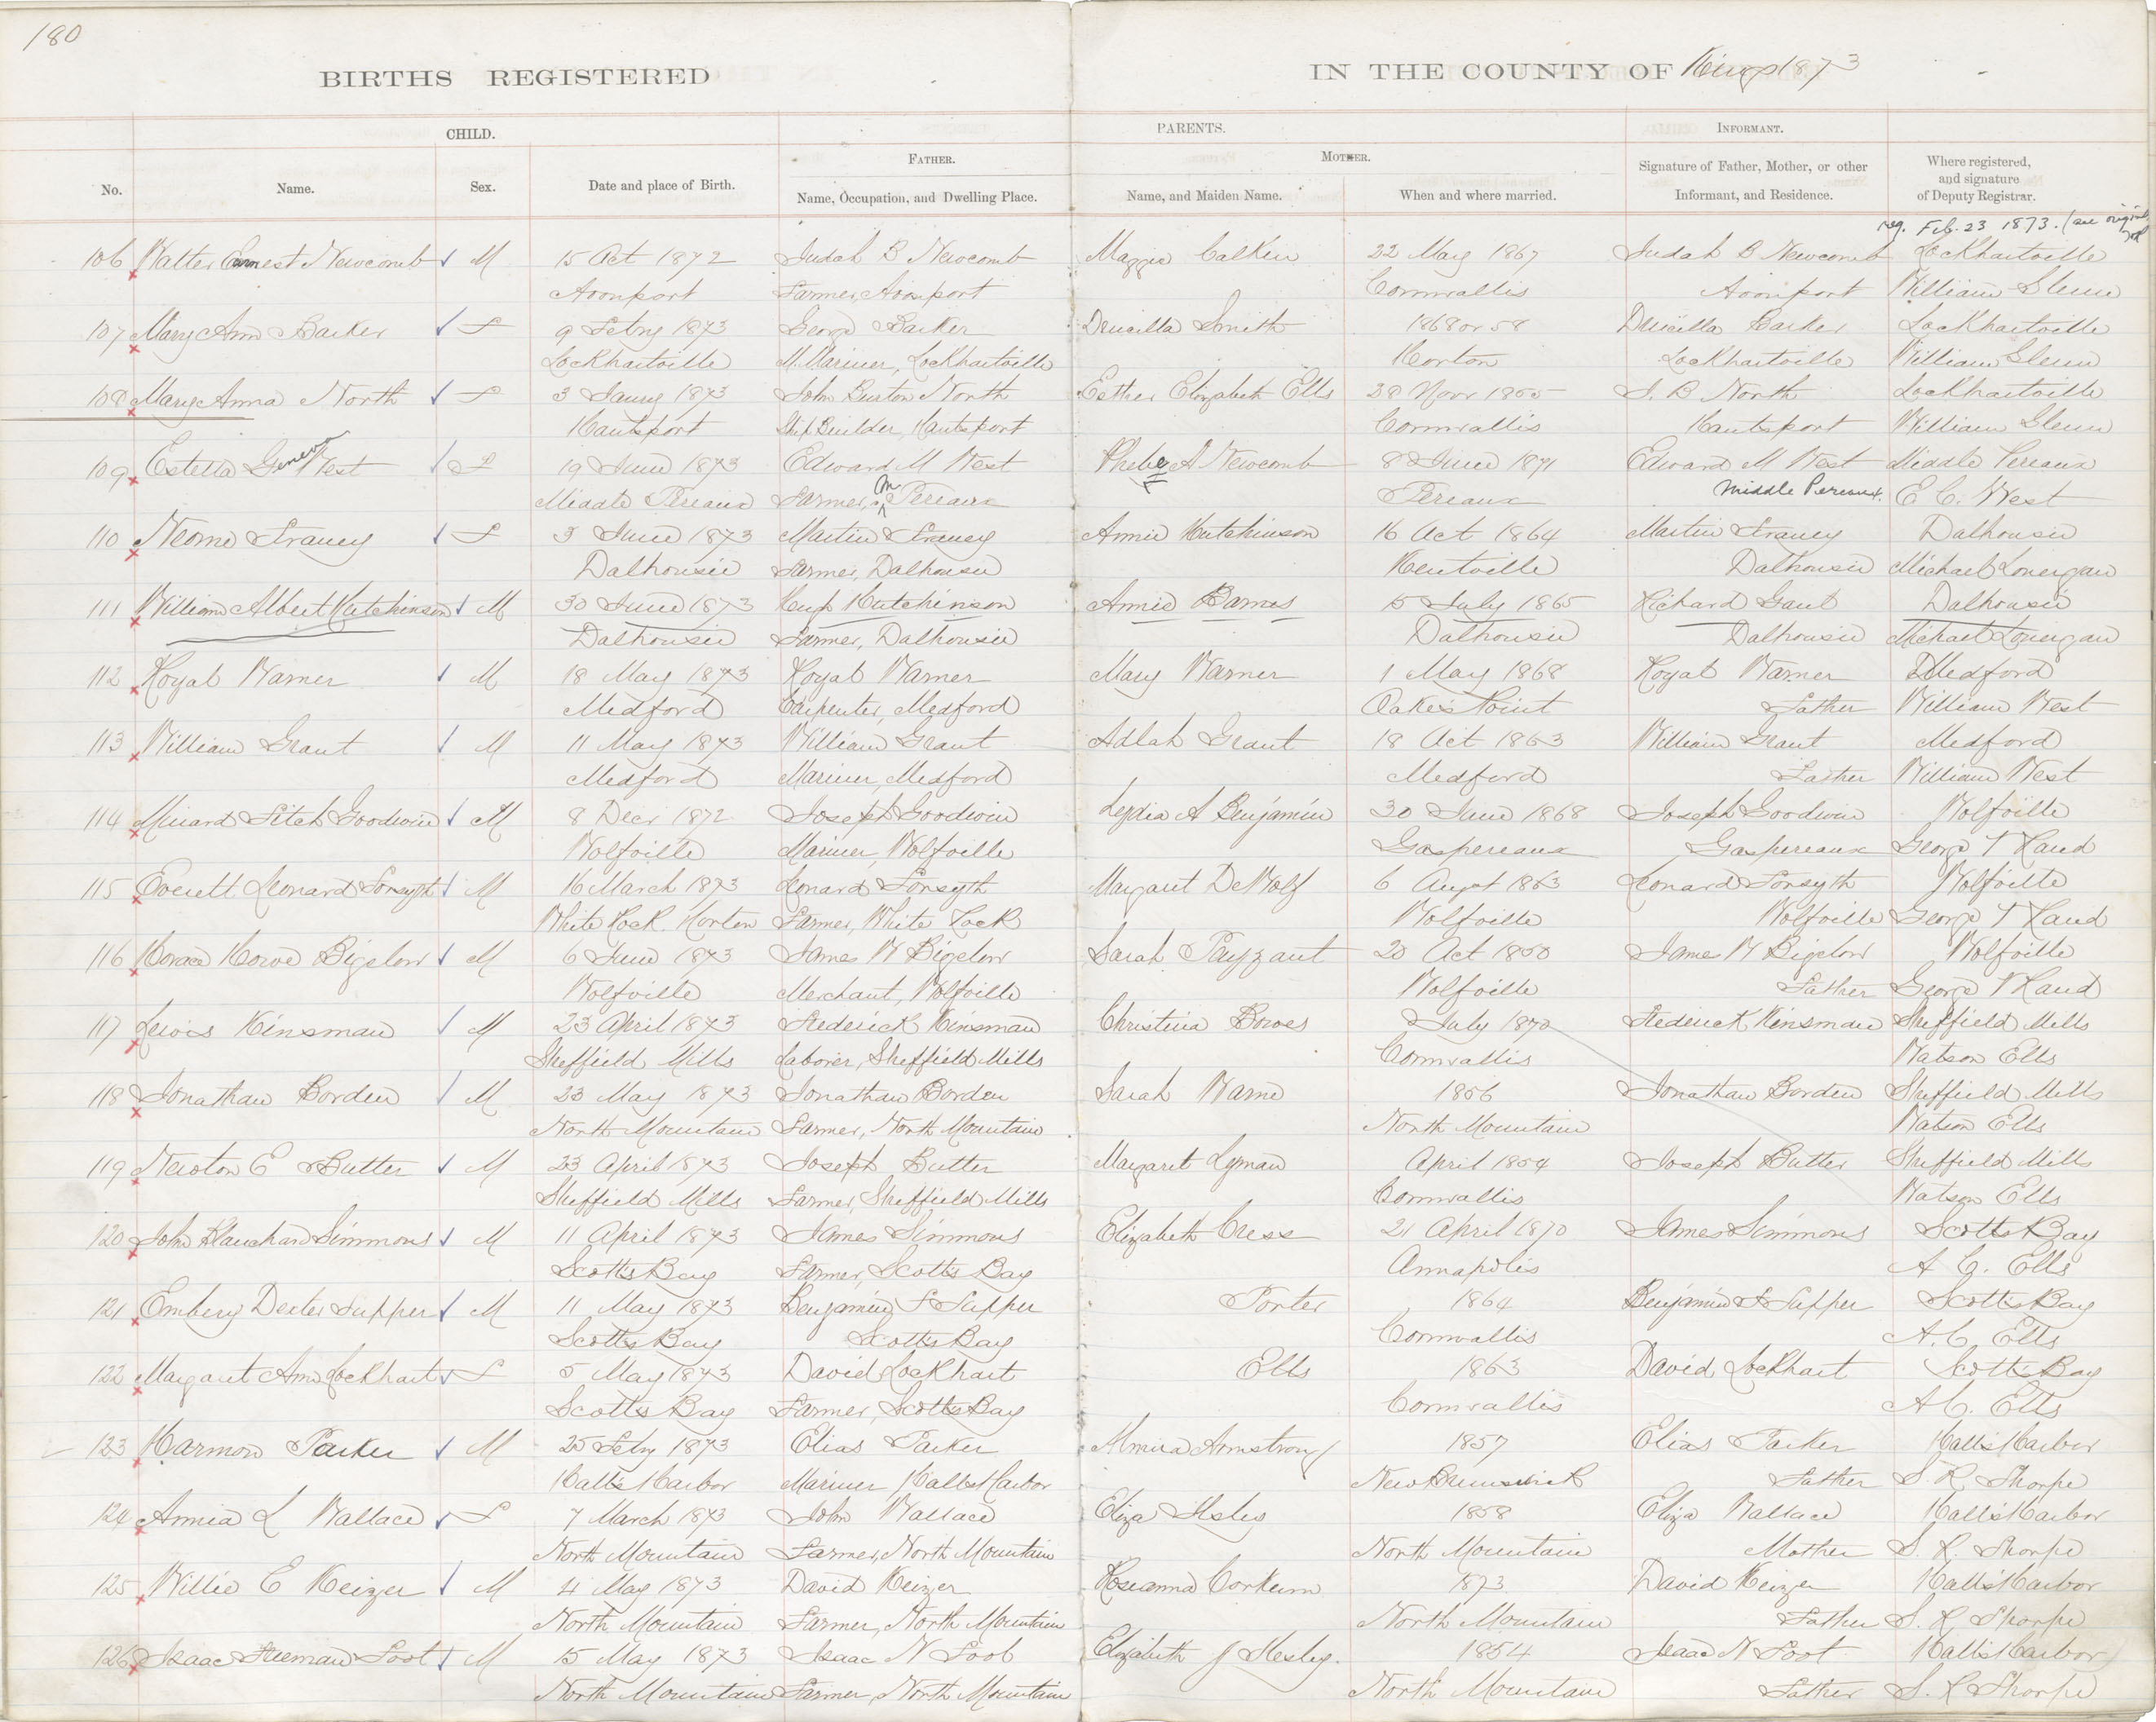 180
BIRTHS REGISTERED IN THE COUNTY OF Kings 1873
CHILD. PARENTS. INFORMANT.
FATHER. MOTHER.
No. Name. Sex. Date and place of Birth. Name, Occupation, and Dwelling Place. Name, and Maiden Name. When and where married. Signature of Father, Mother, or other Informant, and Residence. Where registered, and signature of Deputy Registrar.
reg. Feb. 23 1873. (see original
106 Walter Ernest Newcomb M 15 Oct 1872 Judah B Newcomb Maggie Calkin 22 May 1867 Judah B Newcomb Lockhartville
Avonport Farmer, Avonport Cornwallis Avonport William Glenn
107 Mary Ann Barker F 9 Febry 1873 George Barker Drucilla Smith 1868 or 58 Drucilla Barker Lockhartville
Lockhartville M. Mariner, Lockhartville Horton Lockhartville William Glenn
108 Mary Anna North F 3 Janry 1873 John Burton North Esther Elizabeth Ells 28 Novr 1855 J. B North Lockhartville
Hantsport Ship Builder, Hantsport Cornwallis Hantsport William Glenn
109 Estella Geneva West F 19 June 1873 Edward M West Phebe A Newcomb 8 June 1871 Edward M West Middle Pereaux
Middle Pereaux Farmer, M Pereaux Pereaux Middle Pereaux. E C. West
110 Neome Franey F 3 June 1873 Martin Franey Annie Hutchinson 16 Oct 1864 Martin Franey Dalhousie
Dalhousie Farmer, Dalhousie Kentville Dalhousie Michael Lonergan
111 William Albert Hutchinson M 30 June 1873 Kemp Hutchinson Annie Barnes 15 July 1865 Richard Gaul Dalhousie
Dalhousie Farmer, Dalhousie Dalhousie Dalhousie Michael Lonergan
112 Royal Warner M 18 May 1873 Royal Warner Mary Warner 1 May 1868 Royal Warner Medford
Medford Carpenter, Medford Oakes Point Father William West
113 William Grant M 11 May 1873 William Grant Adlah Grant 18 Oct 1863 William Grant Medford
Medford Mariner, Medford Medford Father William West
114 Minard Fitch Goodwin M 8 Decr 1872 Joseph Goodwin Lydia A Benjamin 30 June 1868 Joseph Goodwin Wolfville
Wolfville Mariner, Wolfville Gaspereaux Gaspereaux George T Rand
115 Everett Leonard Forsyth M 16 March 1873 Leonard Forsyth Margaret DeWolf 6 Augst 1863 Leonard Forsyth Wolfville
White Rock. Horton Farmer, White Rock Wolfville Wolfville George T Rand
116 Horace Howe Bigelow M 6 June 1873 James W Bigelow Sarah Payzant 20 Oct 1850 James W Bigelow Wolfville
Wolfville Merchant, Wolfville Wolfville Father George T Rand
117 Lewis Kinsman M 23 April 1873 Frederick Kinsman Christina Bowes July 1870 Frederick Kinsman Sheffield Mills
Sheffield Mills Laborer, Sheffield Mills Cornwallis Watson Ells
118 Jonathan Borden M 23 May 1873 Jonathan Borden Sarah Warne 1856 Jonathan Borden Sheffield Mills
North Mountain Farmer, North Mountain North Mountain Watson Ells
119 Newton E Butter M 23 April 1873 Joseph Butter Margaret Lyman April 1854 Joseph Butter Sheffield Mills
Sheffield Mills Farmer, Sheffield Mills Cornwallis Watson Ells
120 John Blanchard Simmons M 11 April 1873 James Simmons Elizabeth Cress 21 April 1870 James Simmons Scotts Bay
Scotts Bay Farmer, Scotts Bay Annapolis A C. Ells
121 Embery Dexter Tupper M 11 May 1873 Benjamin F Tupper Porter 1864 Benjamin F Tupper Scotts Bay
Scotts Bay Scotts Bay Cornwallis A. C. Ells
122 Margaret Ann Lockhart F 5 May 1873 David Lockhart Ells 1863 David Lockhart Scotts Bay
Scotts Bay Farmer, Scotts Bay Cornwallis A C. Ells
123 Harmon Parker M 25 Febry 1873 Elias Parker Almira Armstrong 1857 Elias Parker Halls Harbor
Halls Harbor Mariner Halls Harbor New Brunswick Father S. R Thorpe
124 Annia L Wallace F 7 March 1873 John Wallace Eliza Ilsley 1858 Eliza Wallace Halls Harbor
North Mountain Farmer, North Mountain North Mountain Mother S. R. Thorpe
125 Willie E Keizer M 4 May 1873 David Keizer Roseanna Corkum 1873 David Keizer Halls Harbor
North Mountain Farmer, North Mountain North Mountain Father S. R Thorpe
126 Isaac Freeman Foot M 15 May 1873 Isaac N Foot Elizabeth J Ilesley. 1854 Isaac N Foot Halls Harbor
North Mountain Farmer, North Mountain North Mountain Father S. R Thorpe